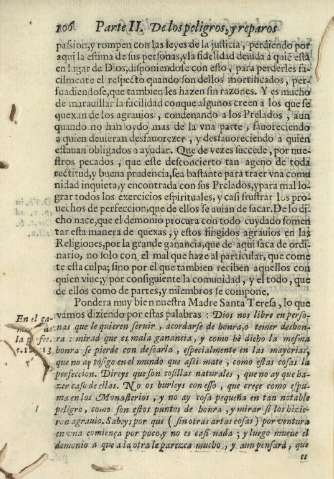 106 Parte II. De los peligros, y reparos
passion, y rompen con las leyes de la justicia, perdiendo por
aqui la estima de sus personas, y la fidelidad devida à quiè està
en lugar de Dios, disponiendose con esto, para perderles fa-
cilmente el respecto quando son dellos mortificados, per-
suadiendose, que tambien les hazen sin razones. Y es mucho
de maravillar la facilidad con que algunos creen a los que se
quexan de los agravios, condenando a los Prelados, aun
quando no han loydo mas de la vna parte, favoreciendo
a quien devieran desfavorezer, y desfavoreciendo a quien
estavan obligados a ayudar. Que de vezes succede, por nue-
stros pecados, que este desconcierto tan ageno de toda
rectitud, y buena prudencia, sea bastante para traer vna comu
nidad inquieta, y encontrada con sus Prelados, y para mal lo-
grar todos los exercicios espirituales, y casi frustrar los pro-
vechos de perfeccion, que de ellos se avian de sacar. De lo di-
cho nace, que el demonio procura con todo cuydado fomen
tar esta manera de quexas, y estos fingidos agravios en las
Religiones, por la grande ganancia, que de aqui saca de ordi-
nario, no solo con el mal que haze al particular, que come
te esta culpa; sino por el que tambien reciben aquellos con
quien vive, y por consiguiente la comunidad, y el todo, que
de ellos como de partes, y miembros se compone.
Pondera muy bien nuestra Madre Santa Teresa, lo que
vamos diziendo por estas palabras: Dios nos libre en perso-
nas que le quieren servir, acordarse de honra, o temer deshon-
ra: mirad que es mala ganancia, y como hè dicho la mesma
honra se pierde con desearla, especialmente en las mayorias,
que no ay tosigo en el mundo que assi mate, como estas cosas la
perfeccion. Direys que son cosillas naturales, que no ay que ha-
zer caso de ellas. No os burleys con esso, que creçe como espu-
ma en los Monasterios, y no ay cosa pequeña en tan notable
peligro, como son estos puntos de honra, y mirar si los hizie-
ron agravio. Sabeys por que (sin otras artas cosas) por ventura
en vna comiença por poco, y no es casi nada; y luego mueve el
demonio a que a la otra le paresca mucho, y aun pensarà, que
es
En el ca-